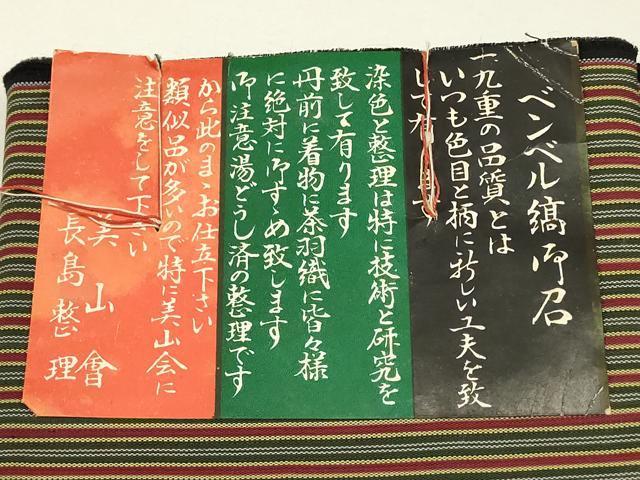 ベンベル縞御召
九重の品質とは
いつも色目と柄に新しい工夫を致
して有
染色と整理は特に技術と研究を
致して有ります
丹前に着物に茶羽織に皆々様
に絶対に御すゝめ致します
御注意湯どうし済の整理です
から此のまゝお仕立下さい
類似品が多いので特に美山会に
注意をして下さい
美山會
長島整理